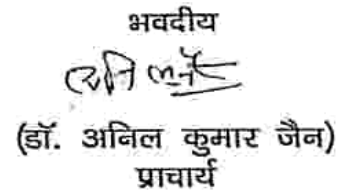 भवदीय
(डॉ. अनिल कुमार जैन)
प्राचार्य